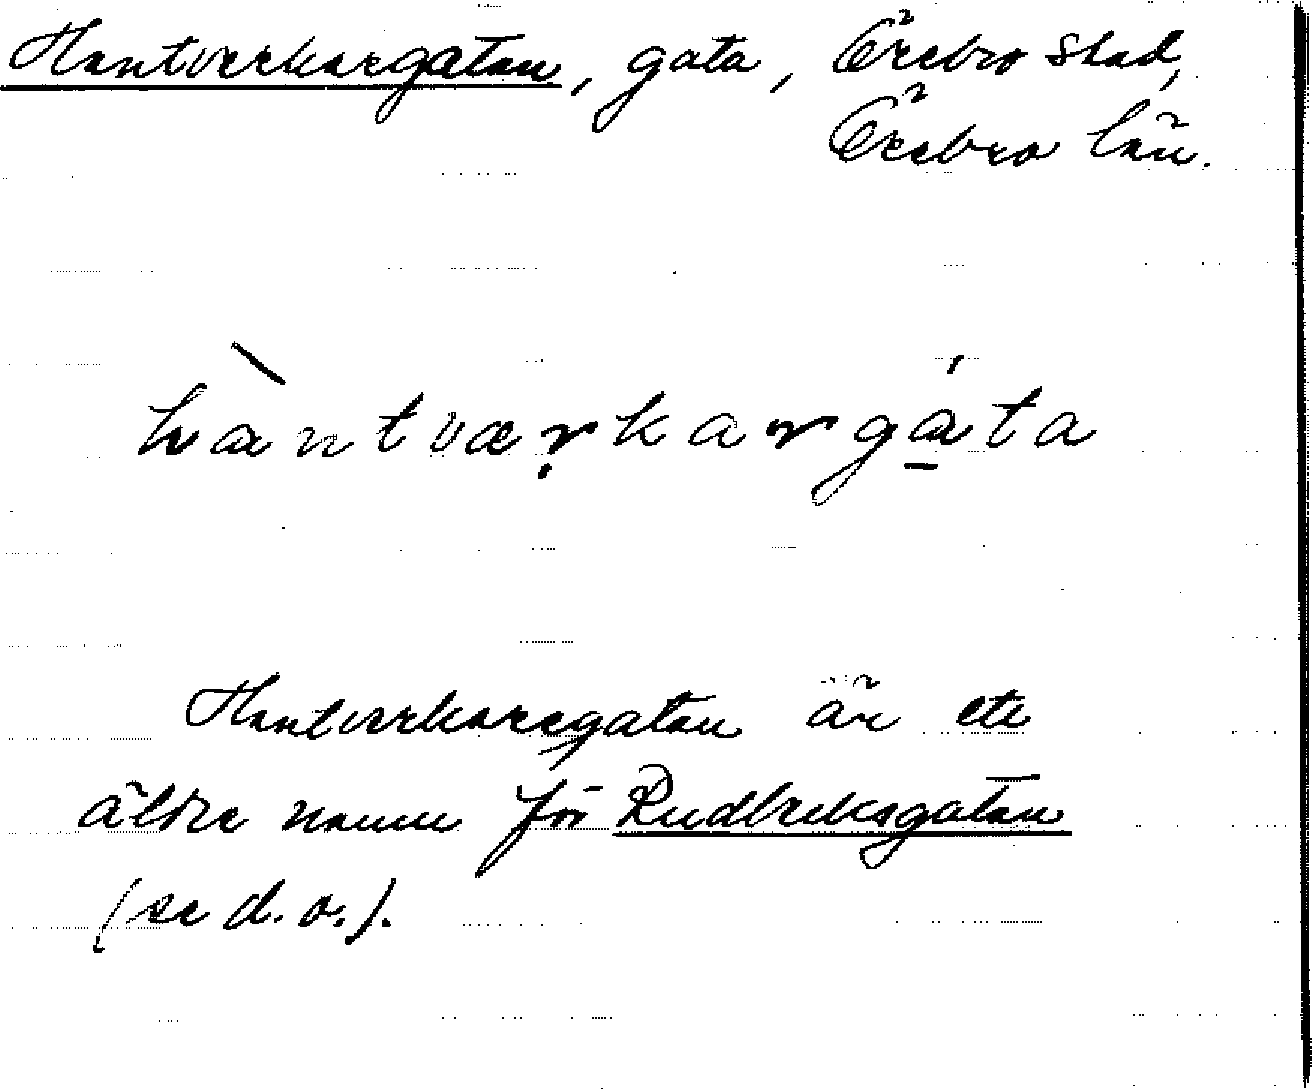 Hantverkargatan, gata, Örebro stad,
Örebro län.
hàntvæṛkargá̠ta
Hantverkaregatan är ett
äldre namn för Rudbecksgatan
(se d. o.).